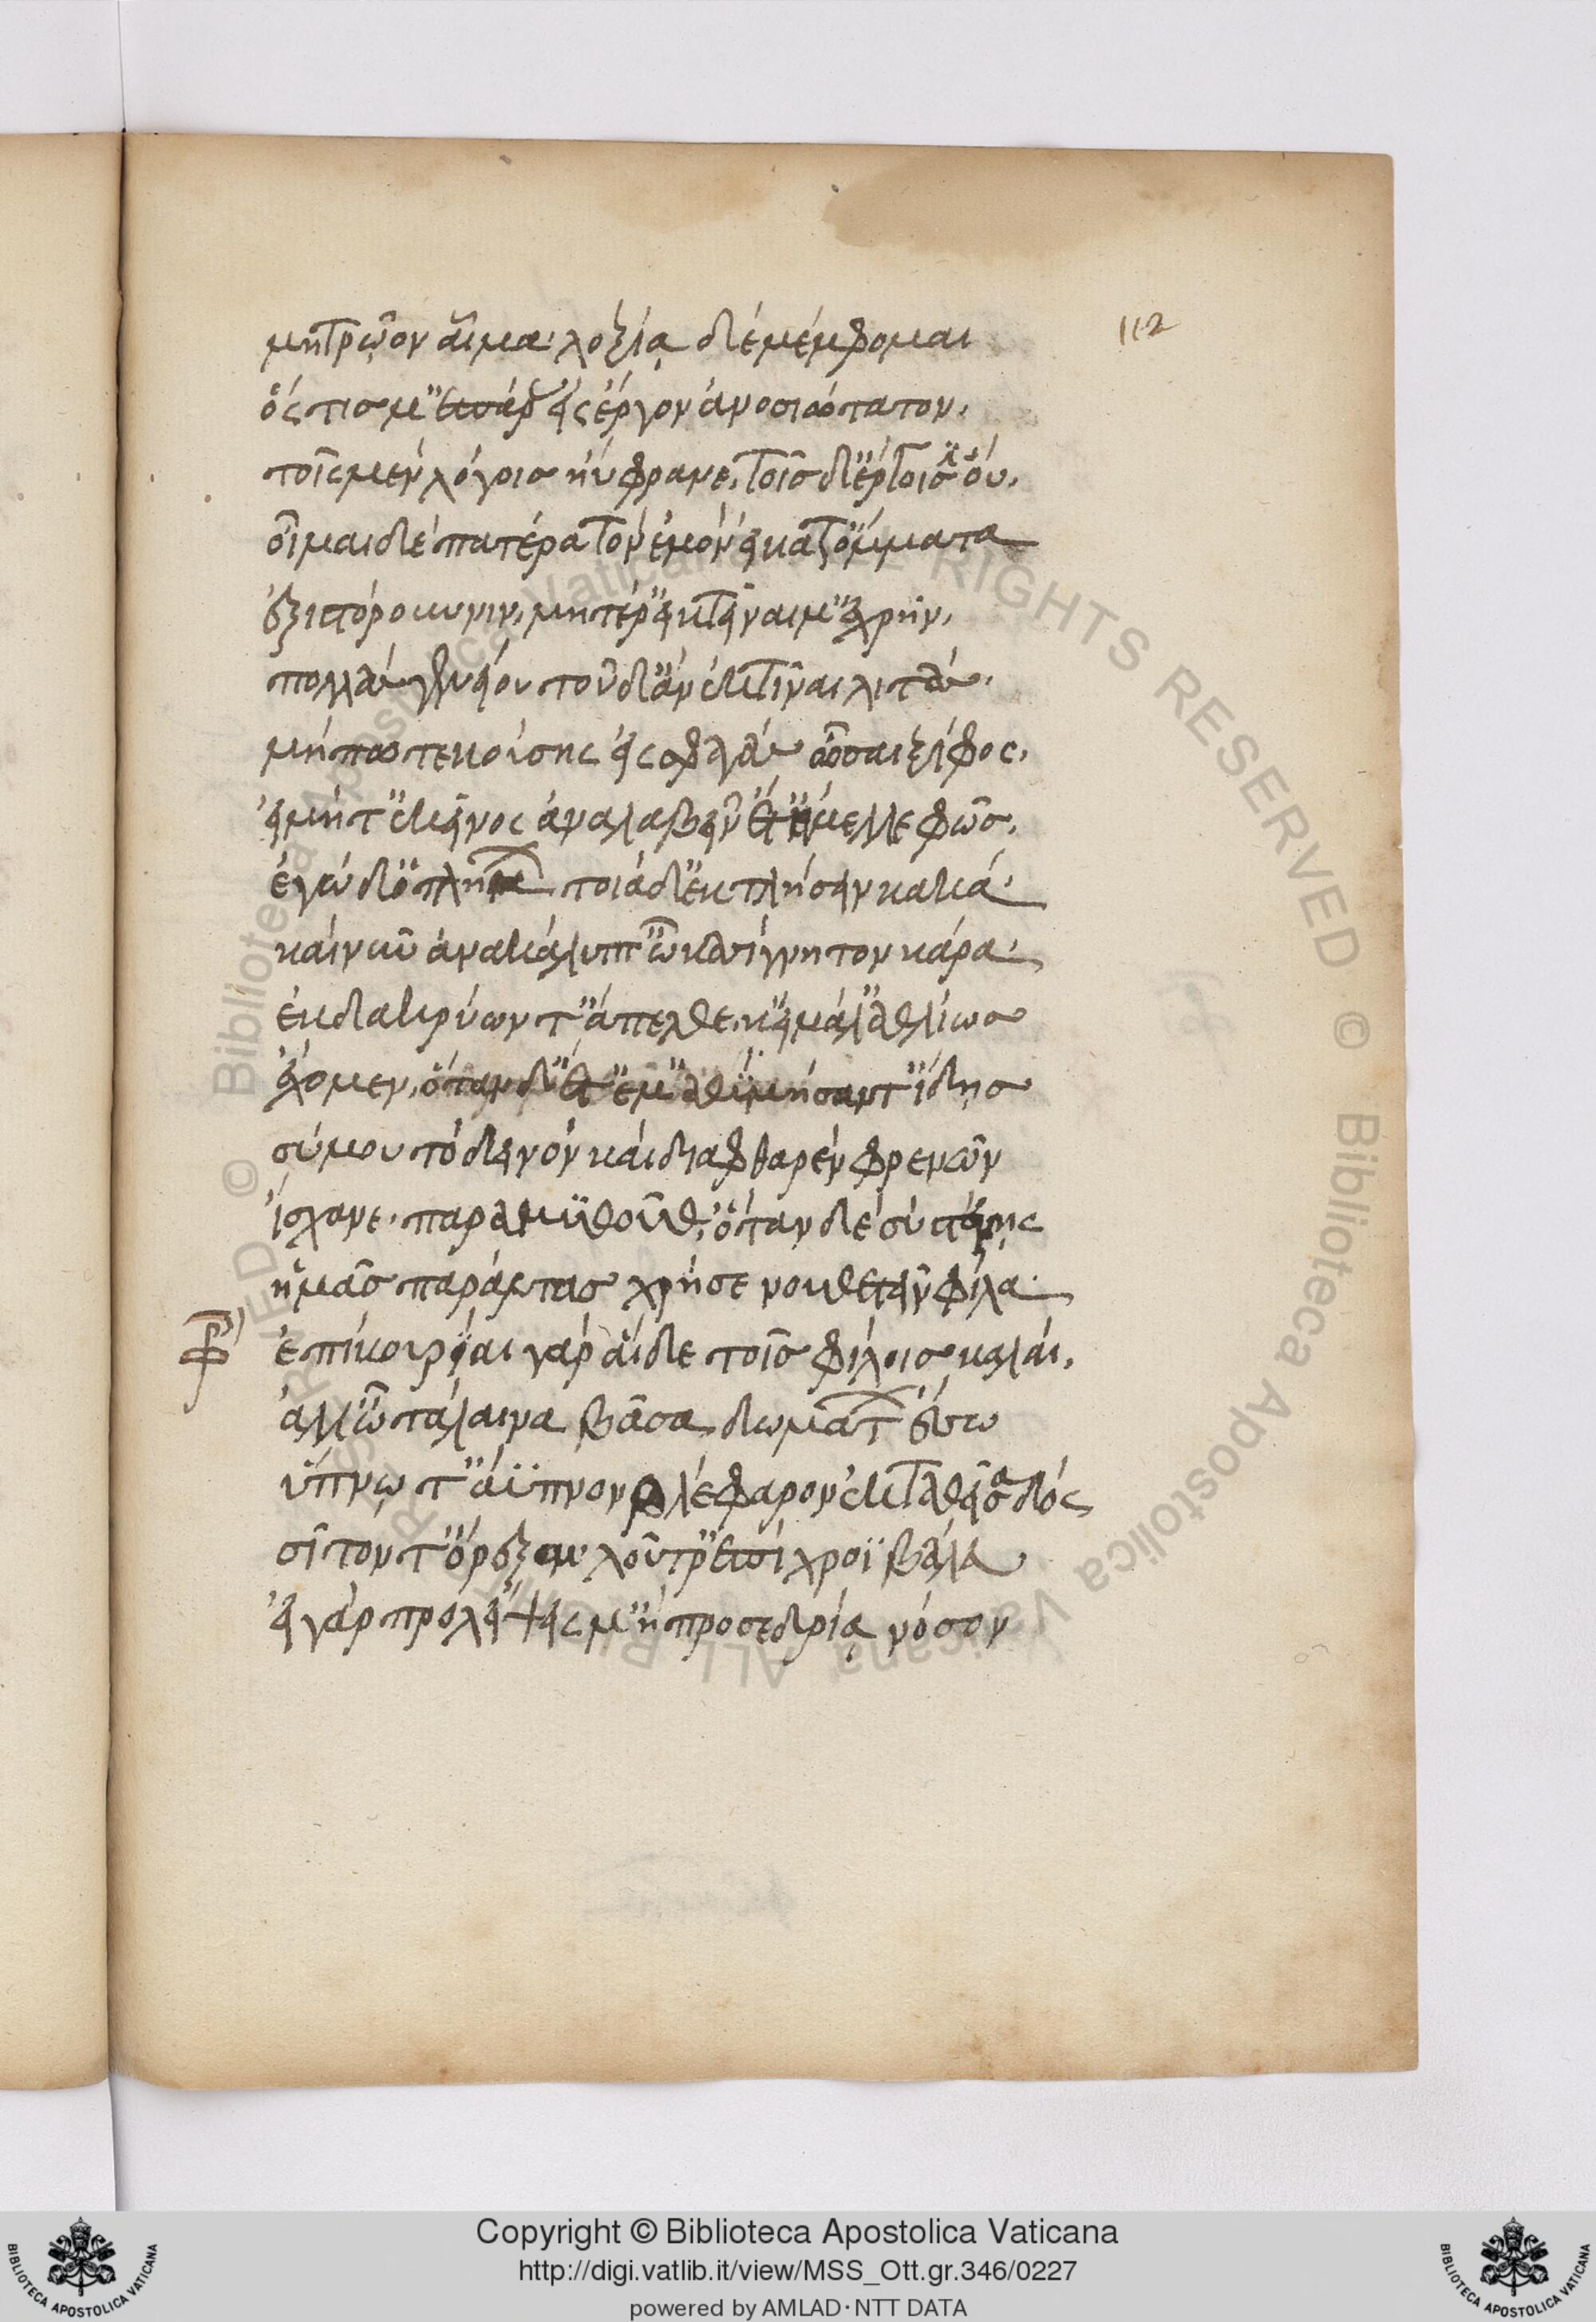 μητρῷον αἷμα· λοξίᾳ δὲ μέμφομαι
112
ὅς τις μ' ἐπάρας εἰς ἔργον ἀνοσιώτατον,
τοῖς μὲν λόγοις ηὔφρανε, τοῖς δ' ἔργοισιν οὔ,
οἶμαι δὲ πατέρα τὸν ἐμὸν εἰ κατ' ὄμματα
ἐξιστόρουν νιν, μητέρ' εἰ κτεῖναί με χρὴν,
πολλὰς γενείου τοῦδ' ἂν ἐκτεῖναι λιτὰς,
μήπω τεκούσης εἰς σφαγὰς ὦσαι ξίφος,
εἰ μήτ' ἐκεῖνος ἀναλαβεῖν ἔμελλε φῶς,
ἐγώ δ' ὁ τλήμων τοιάδ' ἐκπλήσειν κακά·
καὶ νῦν ἀνακάλυπτ' ὦ κασίγνητον κάρα·
ἐκ δακρύων τ' ἄπελθε, κεἰ μάλ' ἀθλίως
ἔχομεν, ὅταν δὲ τἄμ' ἀθυμήσαντ' ἴδῃς
σύ μου τὸ δεινὸν καὶ διαφθαρὲν φρενῶν
ἴσχανε παραμυθοῦ θ', ὅταν δὲ σὺ στένῃς
ἡμᾶς παρόντας χρή σε νουθετεῖν φίλα·
ἐπικουρίαι γὰρ αἵδε τοῖς φίλοις καλαί,
ἀλλ' ὦ τάλαινα βᾶσα δωμάτων ἔσω
ὕπνῳ τ' ἄϋπνον βλέφαρον ἐκταθεῖσα δός
σῖτον τ' ὄρεξαι λουτρ' ἐπὶ χροῒ βάλε
εἰ γὰρ προλείψεις μ' ἢ προσεδρίᾳ νόσον
Copyright © Biblioteca Apostolica Vaticana
http://digi.vatlib.it/view/MSS_Ott.gr.346/0227
powered by AMLAD·NTT DATA